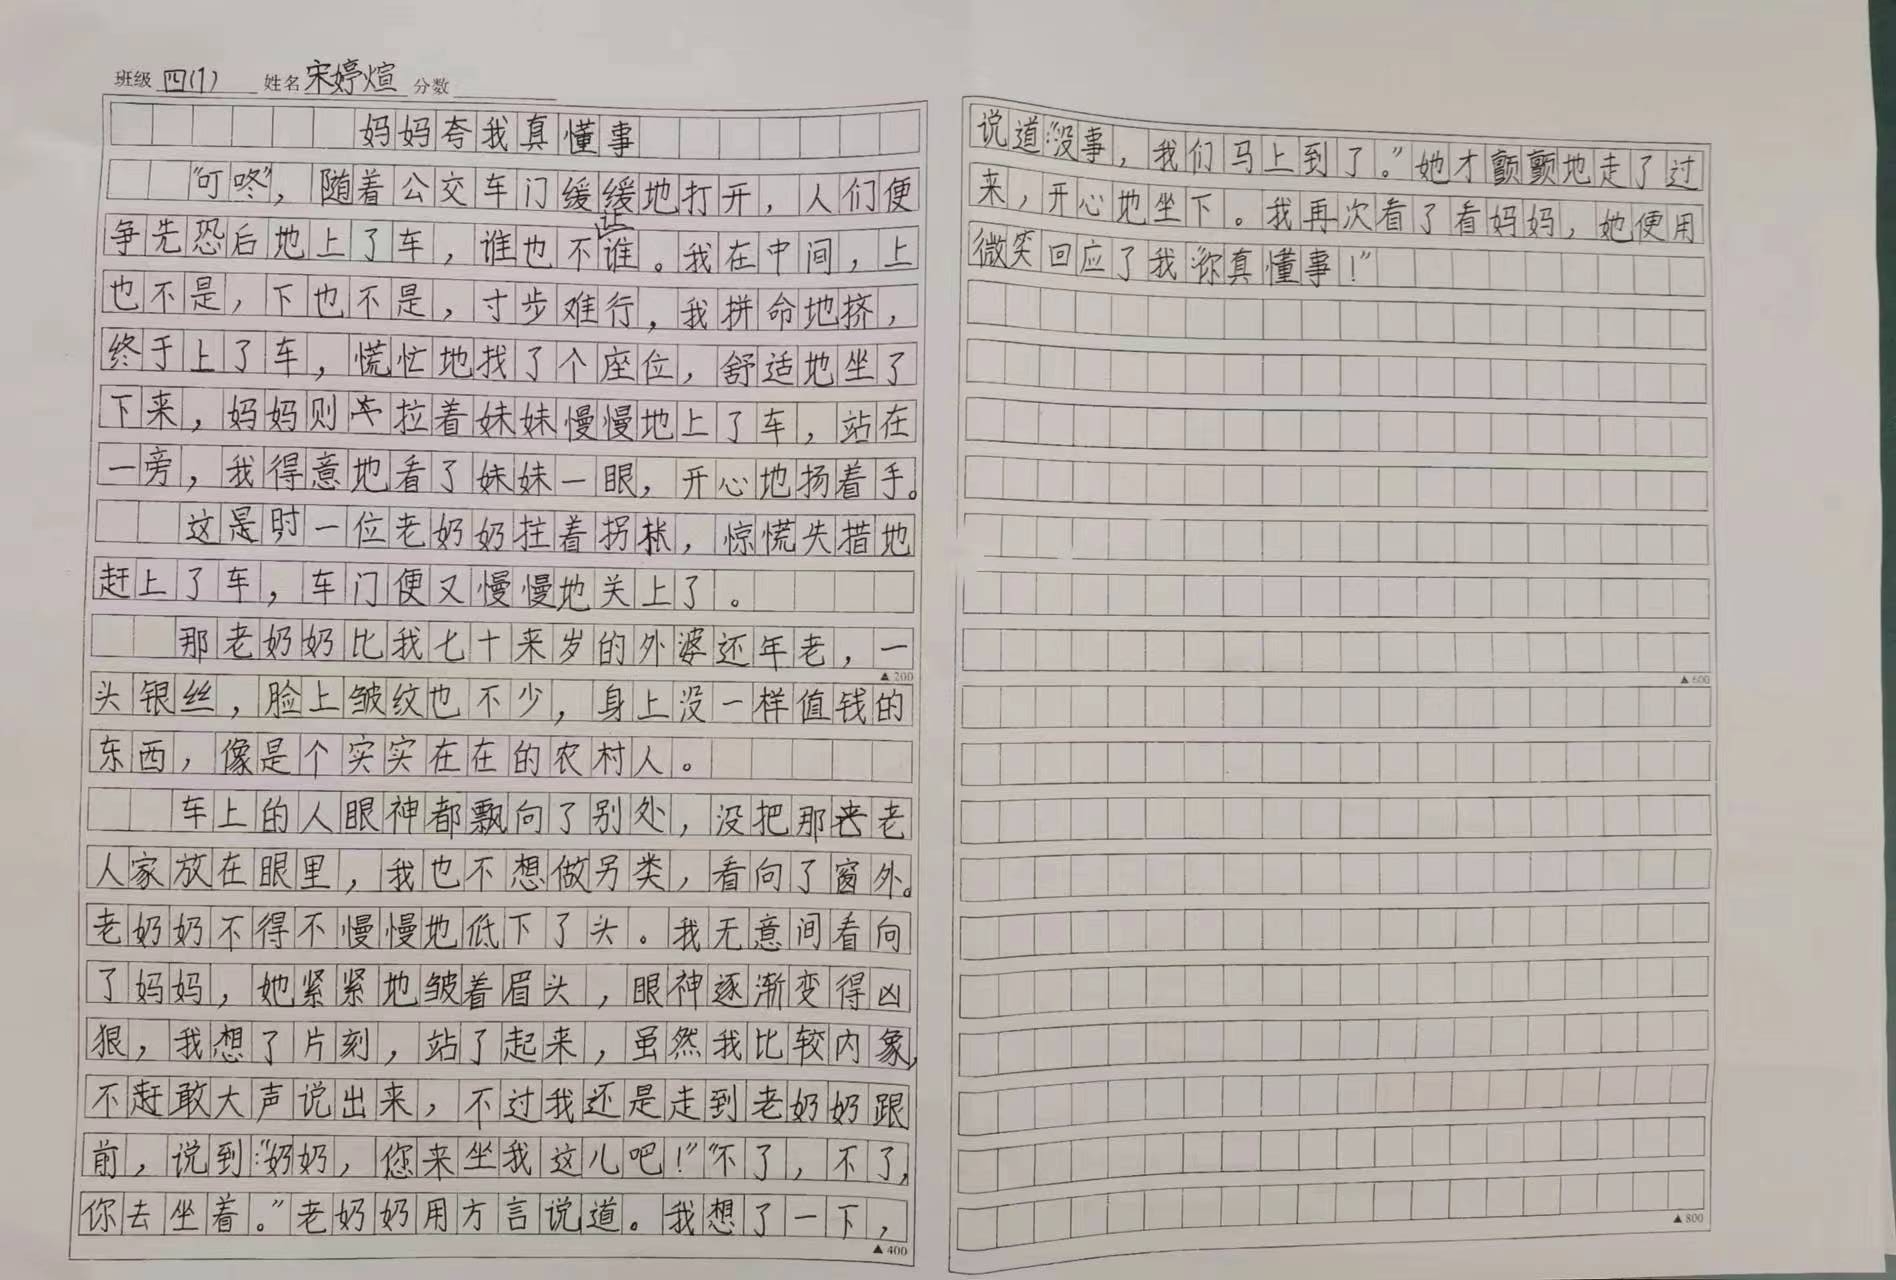 班级 四(1) 姓名 宋婷煊 分数
妈妈夸我真懂事
“叮咚”，随着公交车门缓缓地打开，人们便
争先恐后地上了车，谁也不让谁。我在中间，上
也不是，下也不是，寸步难行，我拼命地挤，
终于上了车，慌忙地找了个座位，舒适地坐了
下来，妈妈则拉着妹妹慢慢地上了车，站在
一旁，我得意地看了妹妹一眼，开心地扬着手。
这是时一位老奶奶拄着拐杖，惊慌失措地
赶上了车，车门便又慢慢地关上了。
那老奶奶比我七十来岁的外婆还年老，一
▲200
头银丝，脸上皱纹也不少，身上没一样值钱的
东西，像是个实实在在的农村人。
车上的人眼神都飘向了别处，没把那老
人家放在眼里，我也不想做另类，看向了窗外。
老奶奶不得不慢慢地低下了头。我无意间看向
了妈妈，她紧紧地皱着眉头，眼神逐渐变得凶
狠，我想了片刻，站了起来，虽然我比较内象，
不赶敢大声说出来，不过我还是走到老奶奶跟
前，说到：“奶奶，您来坐我这儿吧！”“不了，不了，
你去坐着。”老奶奶用方言说道。我想了一下，
▲400
说道：“没事，我们马上到了。”她才颤颤地走了过
来，开心地坐下。我再次看了看妈妈，她便用
微笑回应了我：“你真懂事！”
▲600
▲800